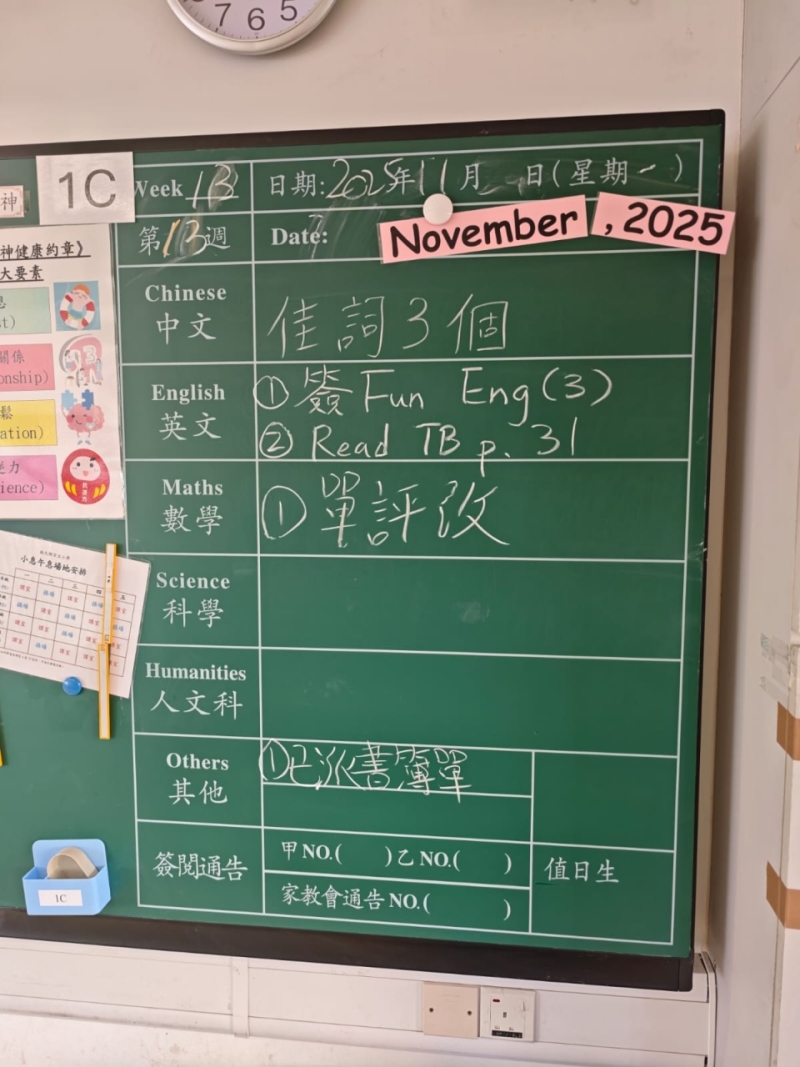 7 6 5
神
1C
Week 13
日期:2025年11月 日(星期一)
第13週
Date:
November , 2025
神健康約章》
大要素
Chinese
中文
佳詞3個
關係
onship)
鬆
ation)
力
ience)
English
英文
① 簽 Fun Eng (3)
② Read TB p. 31
Maths
數學
① 單評改
小息午息場地安排
一 二 三 四 五
Science
科學
Humanities
人文科
Others
其他
①已派書簿單
簽閱通告
甲 NO.( ) 乙 NO.( )
家教會通告 NO.( )
值日生
1C